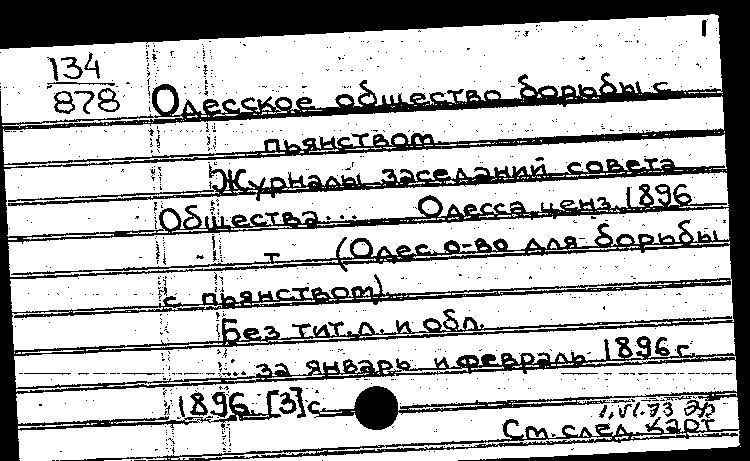 1
134
878
Одесское общество борьбы с
пьянством.
Журналы заседаний совета
Общества... Одесса, ценз. 1896
т (Одес. о-во для борьбы
с пьянством).
Без тит. л. и обл.
... за январь и февраль 1896 г.
1896. [3] с.
Ст. след. карт